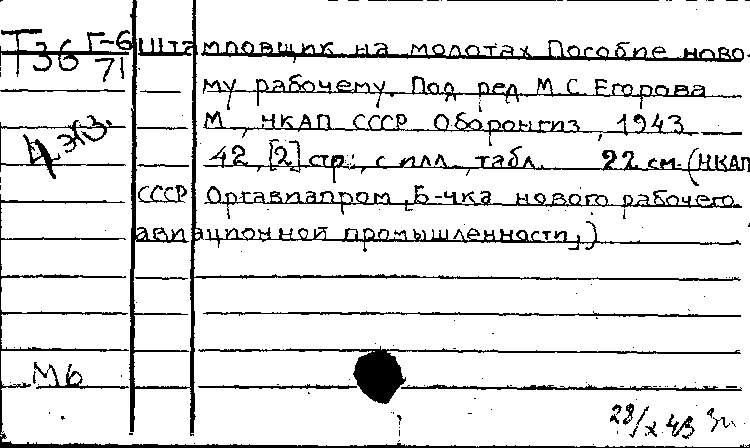 Т36 Г-6/71
Штамповщик на молотах Пособие ново-
му рабочему. Под ред М.С. Егорова
М., НКАП СССР Оборонгиз, 1943
4 экз.
42, [2] стр., с илл., табл. 22 см. (НКАП
СССР Оргавиапром, Б-чка нового рабочего
авиационной промышленности,)
М6
28/X 43